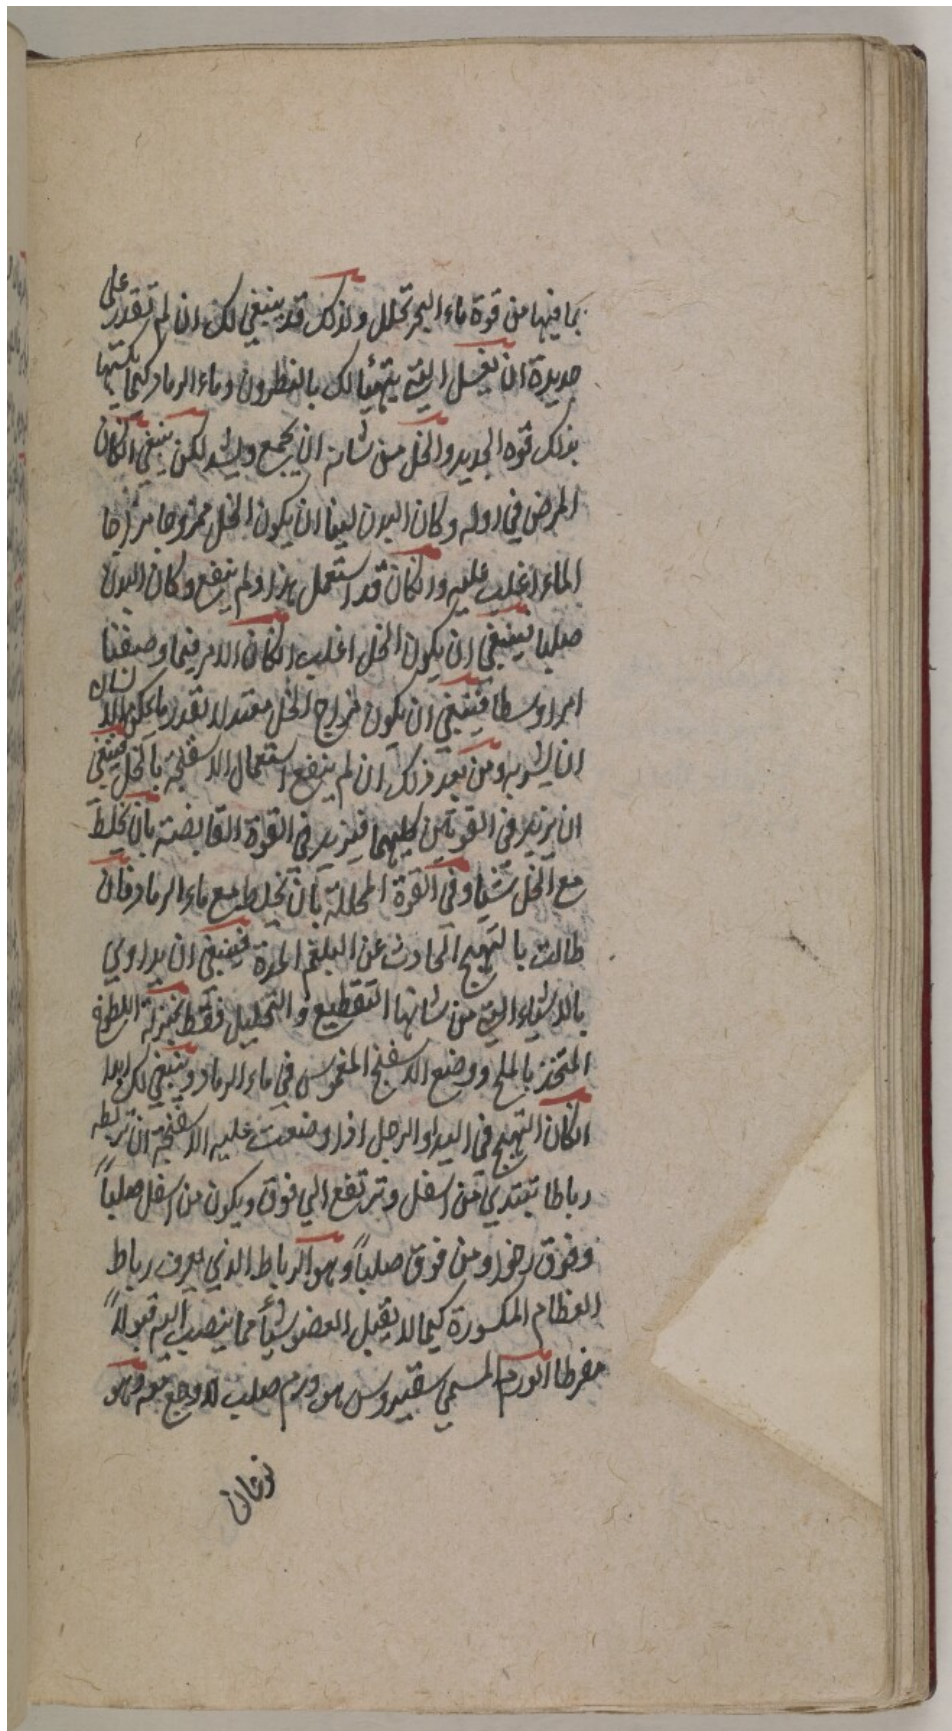 بما فيها من قوة ماء البحر تحلل ولذلك قد ينبغي لك ان لم تقدر على
جديدة ان تغسل التي يتهيأ لك بالنطرون وماء الرماد كيما يكسبها
بذلك قوة الجديد والخل من شانه ان يجمع ويشد لكن ينبغي انكان
المرض في اوله وكان البدن لينا ان يكون الخل ممزوجا مزاجا
الماء اغلب عليه وانكان قد استعمل هذا ولم ينفع وكان البدن
صلبا فينبغي ان يكون الخل اغلب انكان الامر فيما وصفنا
امرا وسطا فينبغي ان يكون مزاج الخل معتدلا بقدر ما يمكن الانسان
ان يشربه ومن بعد ذلك ان لم ينفع استعمال الاسفنجة بالخل فينبغي
ان نزيد في القوتين كليهما فنزيد في القوة القابضة بان نخلط
مع الخل شيا وفي القوة المحللة بان نخلط مع ماء الرماد فان
طالت بالتهيج الحادث عن البلغم المدة فينبغي ان يداوي
بالاشياء التي من شانها التقطيع والتحليل فقط بمنزلة اللطوخ
المتخذ بالملح ووضع الاسفنج المغموس في ماء الرماد وينبغي لك ابدا
انكان التهيج في اليد او الرجل اذا وضعت عليه الاسفنجة ان تربطه
رباطا تبتدي من اسفل وترتفع الي فوق ويكون من اسفل صلباً
وفوق رخوا ومن فوق صلباً وهو الرباط الذي يعرف رباط
العظام المكسورة كيما لا يقبل العضو شيأ مما ينصب اليه قبولاً
مفرطا الورم المسمي سقيروس هو ورم صلب لا وجع معه وهو
نوعان